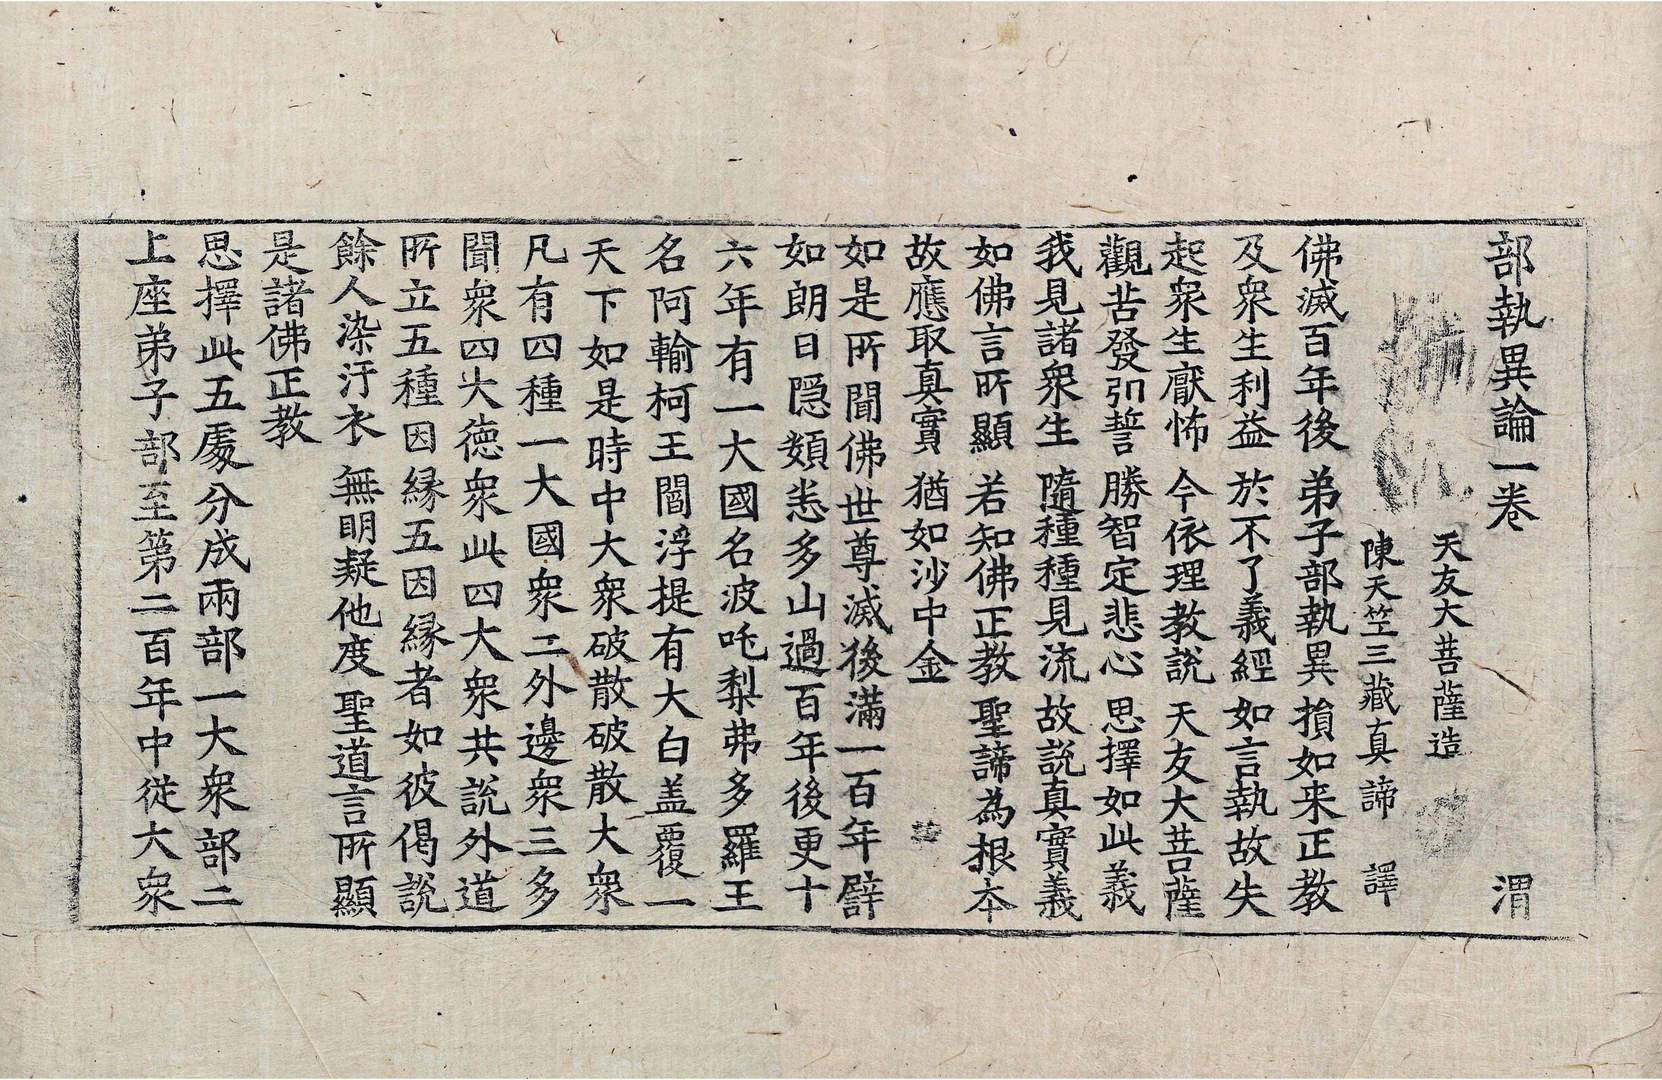 部執異論一卷 渭
天友大菩薩造
陳天竺三藏真諦 譯
佛滅百年後 弟子部執異 損如来正教
及衆生利益 於不了義經 如言執故失
起衆生猒怖 今依理教說 天友大菩薩
觀苦發引誓 勝智定悲心 思擇如此義
我見諸衆生 隨種種見流 故說真實義
如佛言所顯 若知佛正教 聖諦為根夲
故應取真實 猶如沙中金
如是所聞佛世尊滅後滿一百年譬
如朗日隠頞悉多山過百年後更十
六年有一大國名波吒梨弗多羅王
名阿輸柯王閻浮提有大白盖覆一
天下如是時中大衆破散破散大衆
凡有四種一大國衆二外邊衆三多
聞衆四大德衆此四大衆共說外道
所立五種因縁五因縁者如彼偈說
餘人染汙衣 無明疑他度 聖道言所顯
是諸佛正教
思擇此五處分成兩部一大衆部二
上座弟子部至第二百年中從大衆